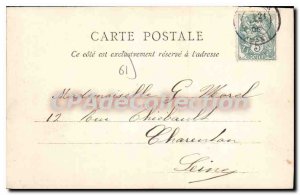 CARTE POSTALE
Ce côté est exclusivement réservé à l'adresse
61
Mademoiselle G Morel
12 Rue Thiébault
Charenton
Seine